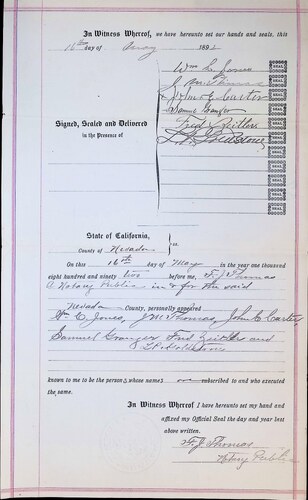 In Witness Whereof, we have hereunto set our hands and seals, this
16th day of May 189
Wm C. Jones
J M Thomas
John C Carter
Samuel Granger
Fred Zeitler
Signed, Sealed and Delivered
in the Presence of
SEAL
SEAL
SEAL
SEAL
SEAL
SEAL
SEAL
SEAL
SEAL
SEAL
SEAL
State of California,
County of Nevada ss.
On this 16th day of May in the year one thousand
eight hundred and ninety two before me, F. J. Thomas
A Notary Public in & for the said
Nevada County, personally appeared
Wm C. Jones, J M Thomas, John C Carter
Samuel Granger Fred Zeitler and
known to me to be the persons whose names are subscribed to and who executed
the same.
In Witness Whereof I have hereunto set my hand and
affixed my Official Seal the day and year last
above written.
F. J. Thomas
Notary Public